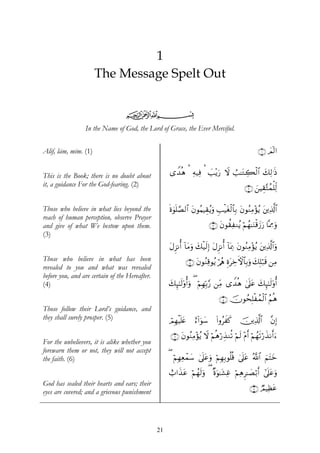 1
The Message Spelt Out
بسم الله الرحمن الرحيم
In the Name of God, the Lord of Grace, the Ever Merciful.
Alif, lām, mīm. (1)
This is the Book; there is no doubt about
it, a guidance for the God-fearing. (2)
Those who believe in what lies beyond the
reach of human perception, observe Prayer
and give of what We bestow upon them.
(3)
Those who believe in what has been
revealed to you and what was revealed
before you, and are certain of the Hereafter.
(4)
Those follow their Lord’s guidance, and
they shall surely prosper. (5)
For the unbelievers, it is alike whether you
forewarn them or not, they will not accept
the faith. (6)
God has sealed their hearts and ears; their
eyes are covered; and a grievous punishment
الٓمٓ ﴿١﴾
ذَٰلِكَ ٱلْكِتَٰبُ لَا رَيْبَ ۛ فِيهِ ۛ هُدًى
لِّلْمُتَّقِينَ ﴿٢﴾
ٱلَّذِينَ يُؤْمِنُونَ بِٱلْغَيْبِ وَيُقِيمُونَ ٱلصَّلَوٰةَ
وَمِمَّا رَزَقْنَٰهُمْ يُنفِقُونَ ﴿٣﴾
وَٱلَّذِينَ يُؤْمِنُونَ بِمَآ أُنزِلَ إِلَيْكَ وَمَآ أُنزِلَ
مِن قَبْلِكَ وَبِٱلْأَخِرَةِ هُمْ يُوقِنُونَ ﴿٤﴾
أُو۟لَٰٓئِكَ عَلَىٰ هُدًى مِّن رَّبِّهِمْ ۖ وَأُو۟لَٰٓئِكَ
هُمُ ٱلْمُفْلِحُونَ ﴿٥﴾
إِنَّ ٱلَّذِينَ كَفَرُوا۟ سَوَآءٌ عَلَيْهِمْ
ءَأَنذَرْتَهُمْ أَمْ لَمْ تُنذِرْهُمْ لَا يُؤْمِنُونَ ﴿٦﴾
خَتَمَ ٱللَّهُ عَلَىٰ قُلُوبِهِمْ وَعَلَىٰ سَمْعِهِمْ ۖ
وَعَلَىٰٓ أَبْصَٰرِهِمْ غِشَٰوَةٌ ۖ وَلَهُمْ عَذَابٌ
عَظِيمٌ ﴿٧﴾
21